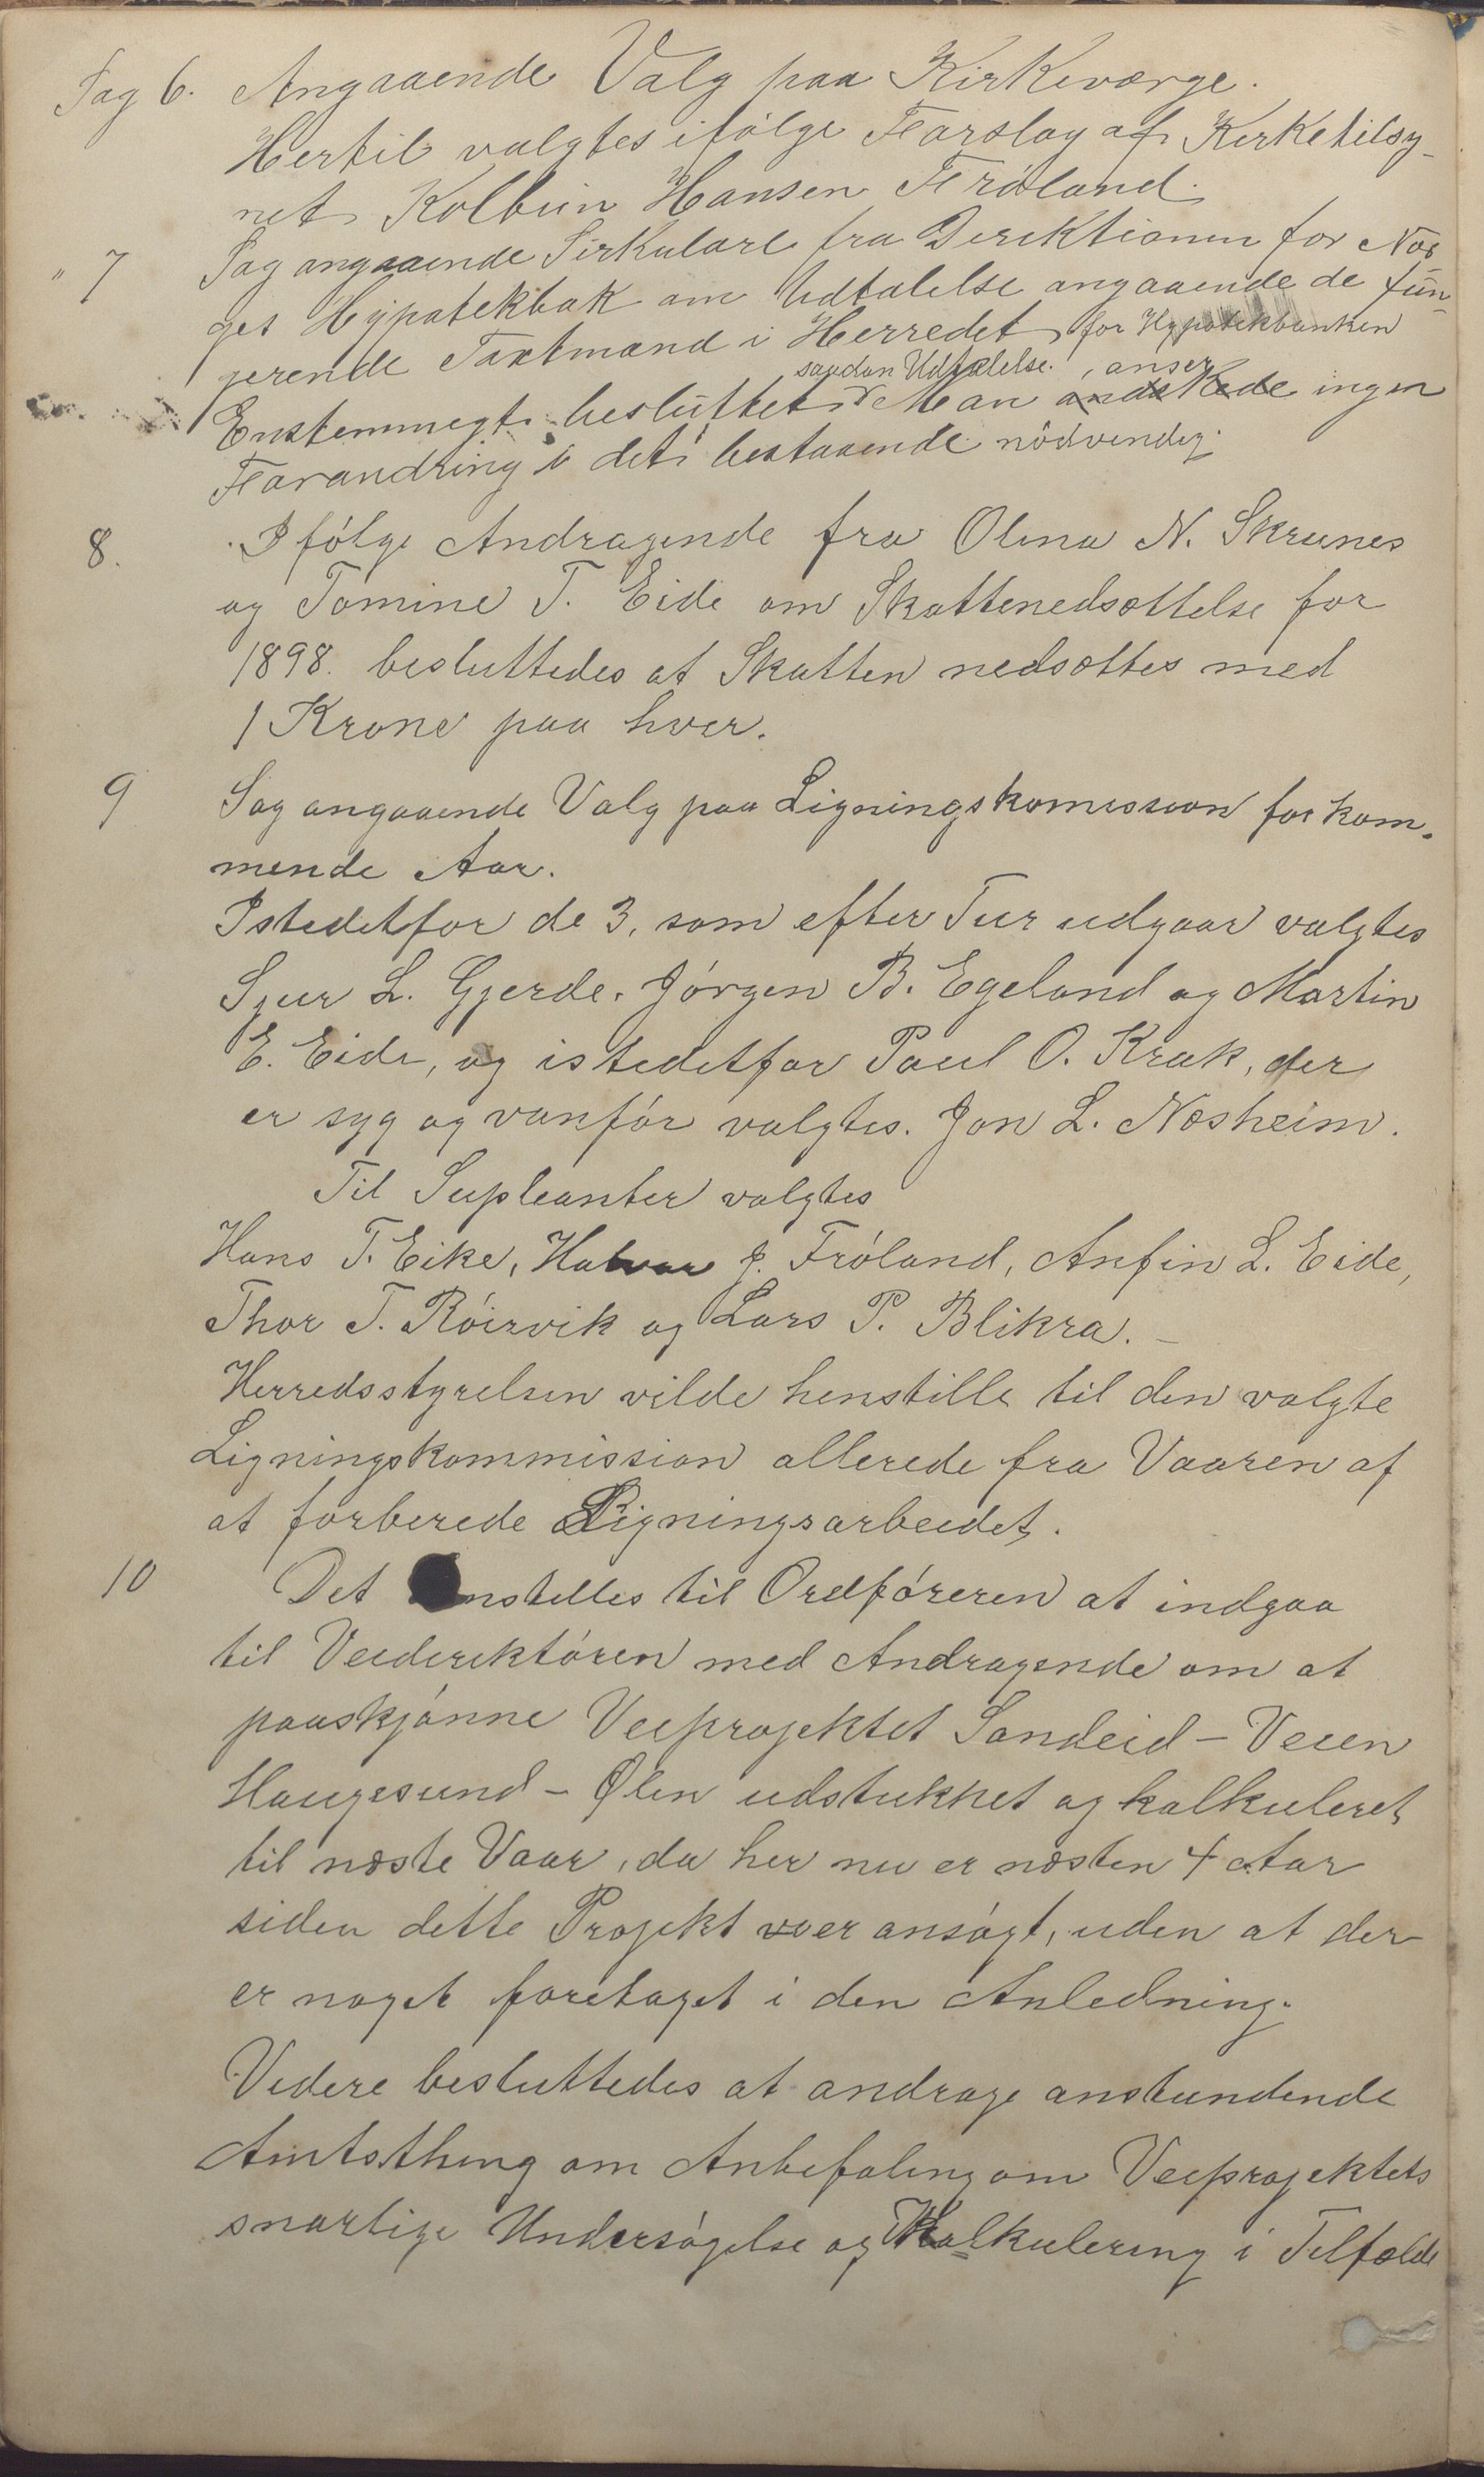 Sag 6. Angaaende Valg paa Kirkeværge.
Hertil valgtes ifølge Forslag af Kirketilsy-
net Kolbein Hansen Fröland.
" 7 Sag angaaende Sirkulære fra Direktionen for Nor
ges Hypotekbak om Udtalelse angaaende de fun-
gerende Taxtmænd i Herredet for Hypotekbanken
saadan Udtalelse. , anser
Enstemmegt besluttet Man andskede ingen
Forandring i det bestaaende nödvendig.
8. Ifölge Andragende fra Olena N. Skrunes
og Tomine T. Eide om Skattenedsættelse for
1898. besluttedes at Skatten nedsættes med
1 Krone paa hver.
9 Sag angaaende Valg paa Ligningskomission for kom-
mende Aar.
Istedetfor de 3, som efter Tur udgaar valgtes
Sjur L. Gjerde. Jörgen B. Egeland og Martin
E. Eide, og istedetfor Poul O. Krak, der
er syg og vanför valgtes. Jon L. Næsheim.
Til Supleanter valgtes
Hans T. Eike, Halvar J. Fröland, Anfin L. Eide,
Thor T. Röirvik og Lars P. Blikra. -
Herredsstyrelsen vilde henstille til den valgte
Ligningskommission allerede fra Vaaren af
at forberede Ligningsarbeidet.
10 Det nstilles til Ordföreren at indgaa
til Veidirektören med Andragende om at
paaskjönne Veiprojektet Sandeid - Veien
Haugesund - Ølen udstukket og kalkuleret
til næste Vaar, da her nu er næsten 4 Aar
siden dette Projekt er ansögt, uden at der
er noget foretaget i den Anledning.
Videre besluttedes at andrage anstundende
Amtsthing om Anbefaling om Veiprojektets
snarlige Undersögelse og Kalkulering i Tilfælde